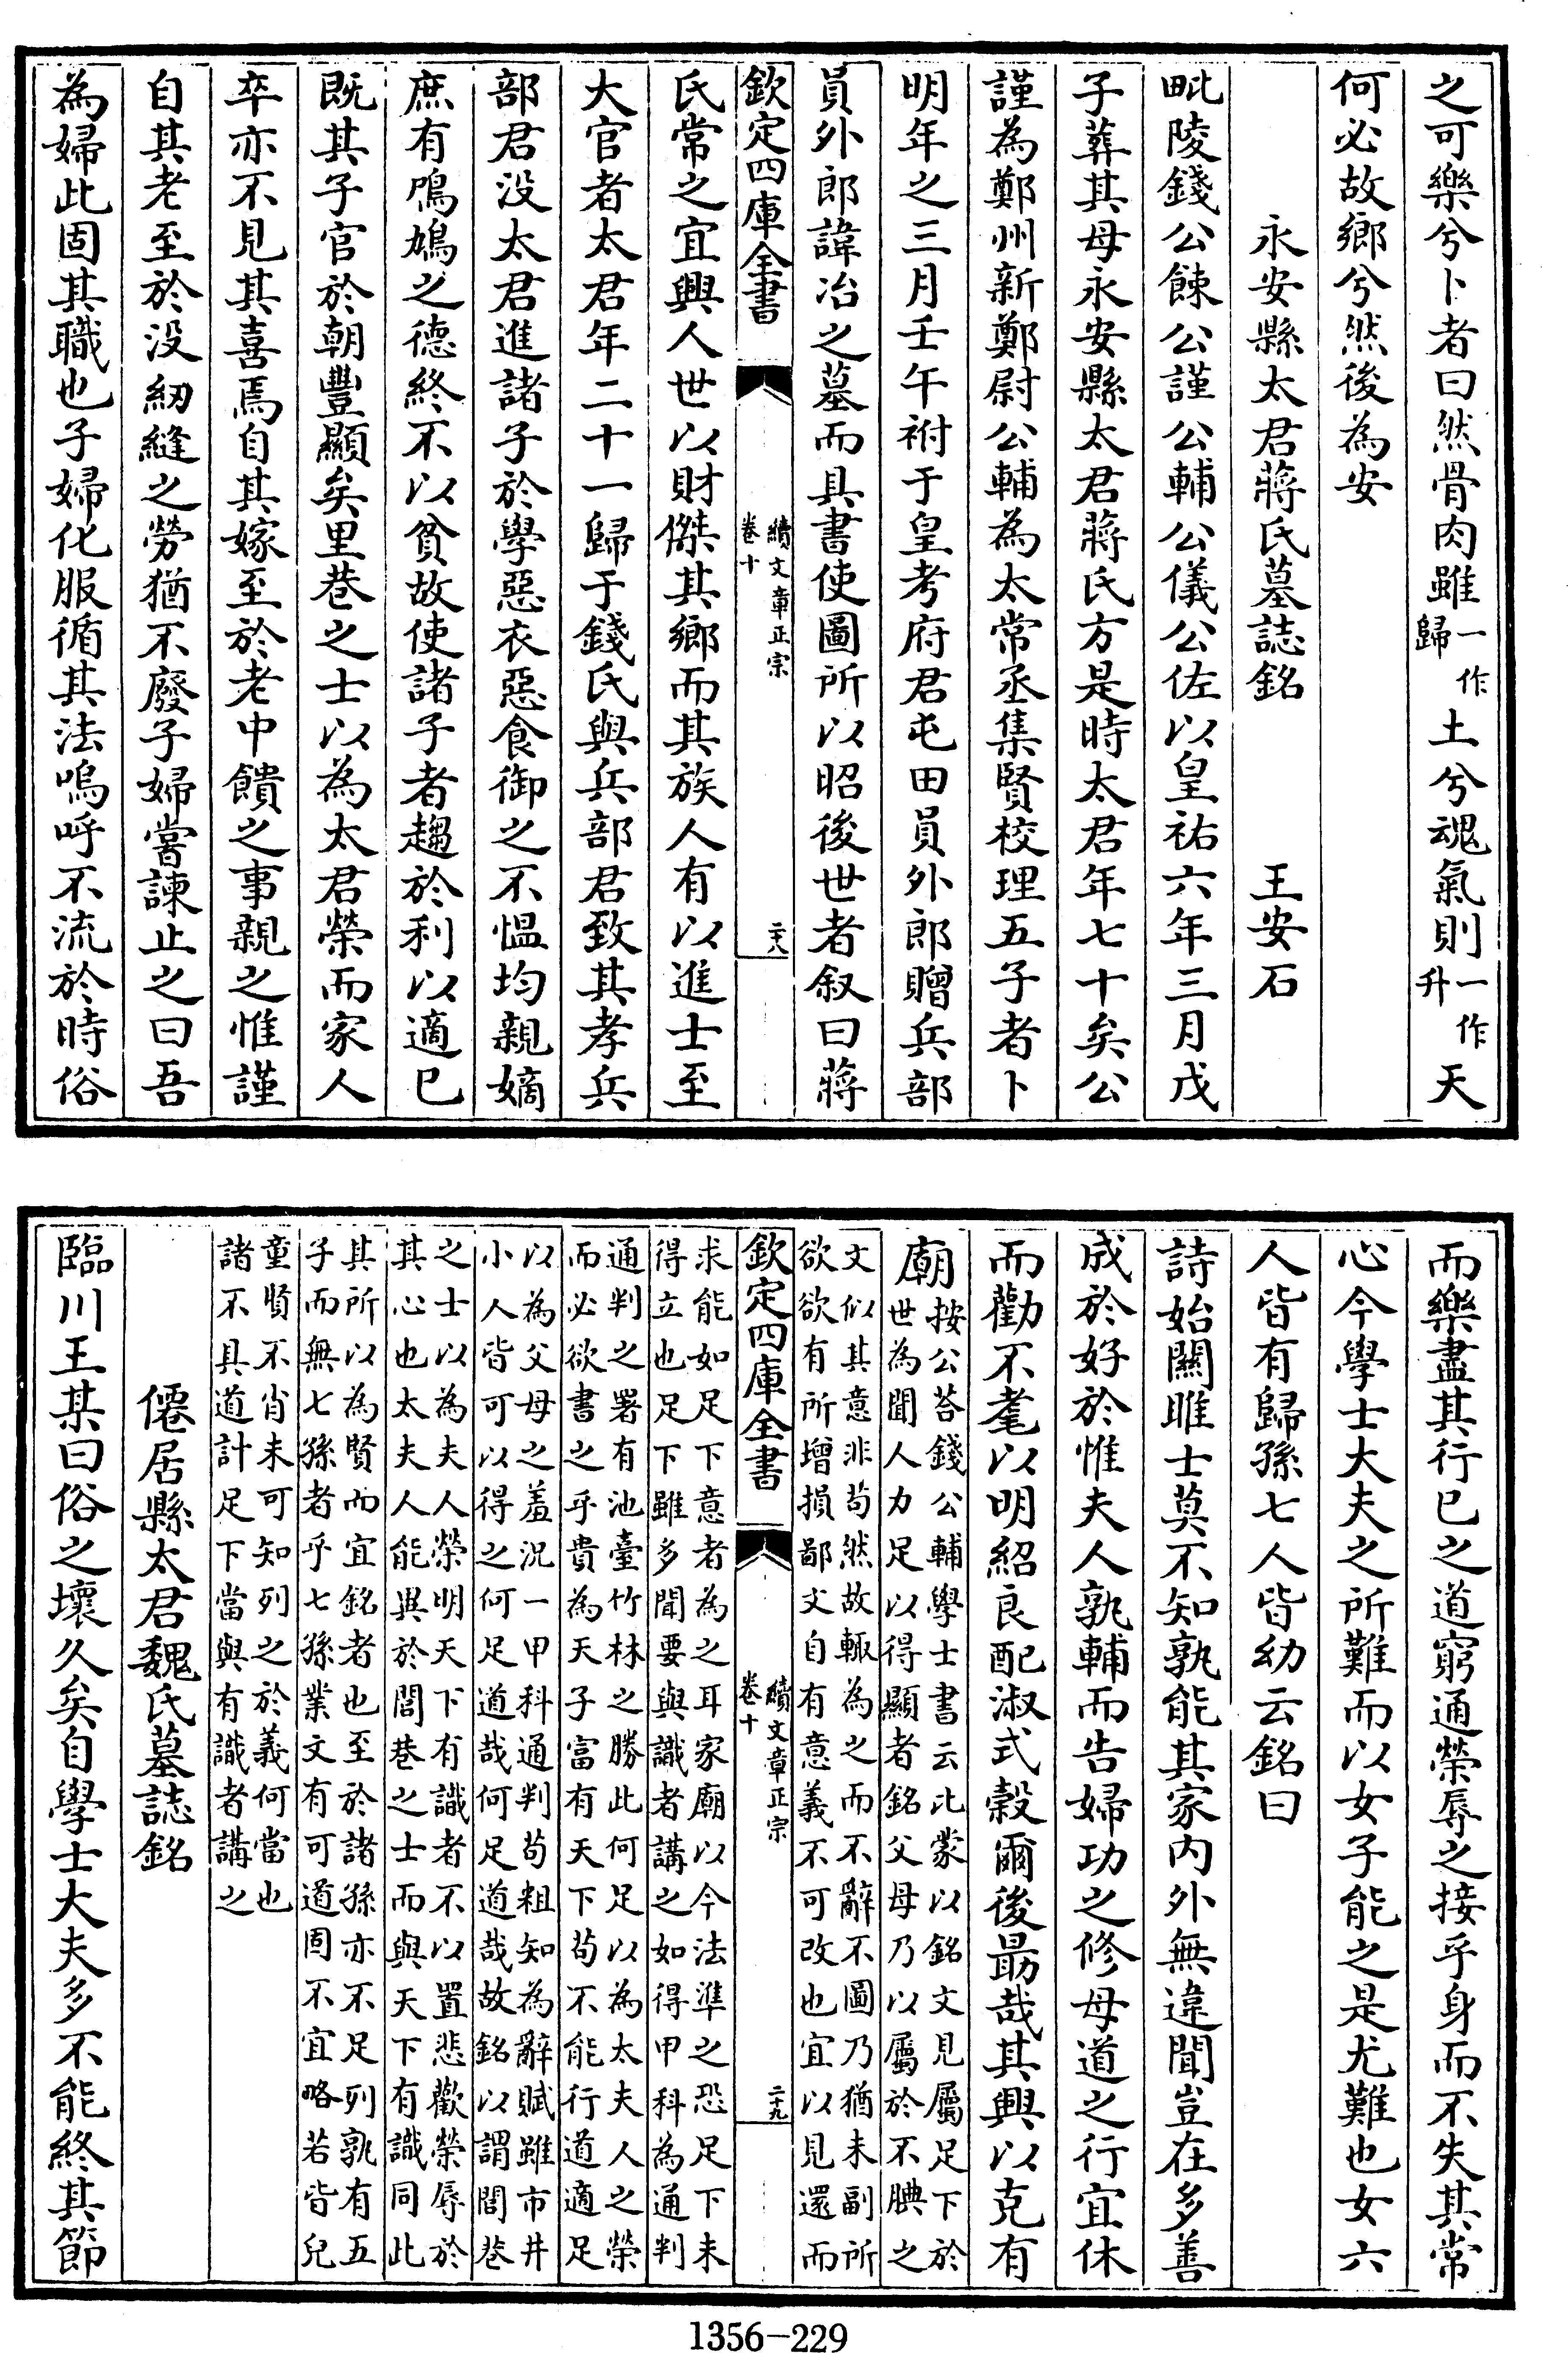 之可樂兮卜者曰然骨肉雖一作歸土兮魂氣則一作升天
何必故鄉兮然後為安
永安縣太君蔣氏墓誌銘　王安石
毗陵錢公餗公謹公輔公儀公佐以皇祐六年三月戊
子葬其母永安縣太君蔣氏方是時太君年七十矣公
謹為鄭州新鄭尉公輔為太常丞集賢校理五子者卜
明年之三月壬午祔于皇考府君屯田員外郎贈兵部
員外郎諱冶之墓而具書使圖所以昭後世者叙曰蔣
欽定四庫全書　續文章正宗　卷十　二十八
氏常之宜興人世以財傑其鄉而其族人有以進士至
大官者太君年二十一歸于錢氏與兵部君致其孝兵
部君没太君進諸子於學惡衣惡食御之不慍均親嫡
庶有鳲鳩之德終不以貧故使諸子者趨於利以適已
既其子官於朝豐顯矣里巷之士以為太君榮而家人
卒亦不見其喜焉自其嫁至於老中饋之事親之惟謹
自其老至於没紉縫之勞猶不廢子婦嘗諫止之曰吾
為婦此固其職也子婦化服循其法嗚呼不流於時俗
而樂盡其行已之道窮通榮辱之接乎身而不失其常
心今學士大夫之所難而以女子能之是尤難也女六
人皆有歸孫七人皆幼云銘曰
詩始關雎士莫不知孰能其家内外無違聞豈在多善
成於好於惟夫人孰輔而告婦功之修母道之行宜休
而勸不耄以明紹良配淑式榖爾後勗哉其興以克有
廟按公荅錢公輔學士書云比蒙以銘文見屬足下於
世為聞人力足以得顯者銘父母乃以屬於不腆之
文似其意非苟然故輒為之而不辭不圖乃猶未副所
欲欲有所增損鄙文自有意義不可改也宜以見還而
欽定四庫全書　續文章正宗　卷十　二十九
求能如足下意者為之耳家廟以今法準之恐足下未
得立也足下雖多聞要與識者講之如得甲科為通判
通判之署有池臺竹林之勝此何足以為太夫人之榮
而必欲書之乎貴為天子富有天下苟不能行道適足
以為父母之羞況一甲科通判苟粗知為辭賦雖市井
小人皆可以得之何足道哉何足道哉故銘以謂閭巷
之士以為夫人榮明天下有識者不以置悲歡榮辱於
其心也太夫人能異於閭巷之士而與天下有識同此
其所以為賢而宜銘者也至於諸孫亦不足列孰有五
子而無七孫者乎七孫業文有可道固不宜略若皆兒
童賢不肖未可知列之於義何當也
諸不具道計足下當與有識者講之
僊居縣太君魏氏墓誌銘
臨川王某曰俗之壞久矣自學士大夫多不能終其節
1356-229